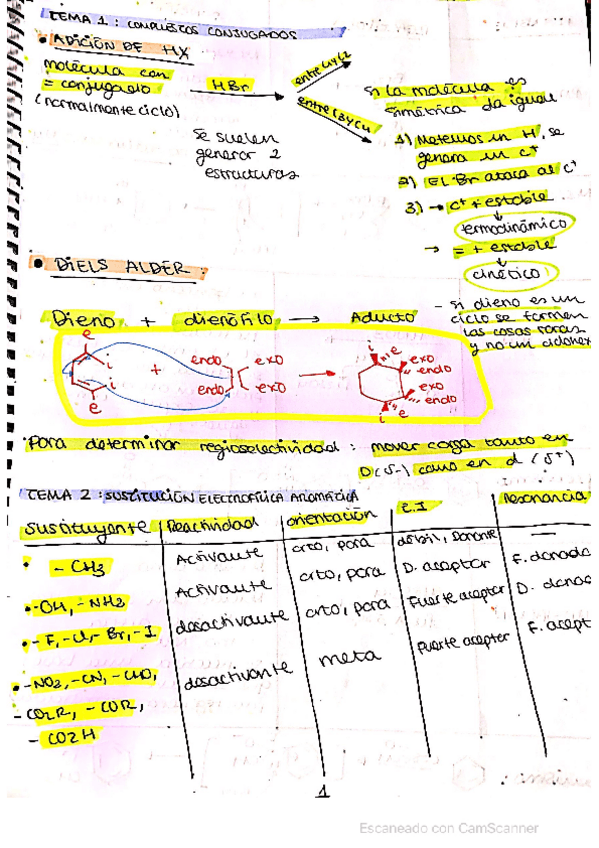 TEMA 1 : COMPUESTOS CONJUGADOS
• ADICIÓN DE HX
molécula con
= conjugado
(normalmente ciclo)
HBr
entre C1 y C2
entre C3 y C4
se suelen
generar 2
estructuras
si la molécula es
simétrica da igual
1) Metemos un H, se
genera un C+
2) El Br ataca al C+
3) → C+ + estable
↓
termodinámico
→ = + estable
↓
cinético
• DIELS ALDER :
Dieno + dienófilo → Aducto
- si dieno es un
ciclo se forman
las cosas raras
y no un ciclohex
e
i
i
e
+
endo
endo
exo
exo
→
i
e
exo
endo
exo
endo
i
e
Para determinar regioselectividad : mover carga tanto en
D(δ-) como en d (δ+)
TEMA 2 : SUSTITUCIÓN ELECTROFÍLICA AROMÁTICA
Sustituyente | Reactividad | orientación | E.I | Resonancia
• - CH3 | Activante | orto, para | débil, Donante | —
• - OH, - NH2 | Activante | orto, para | D. aceptor | F. donado
• - F, - Cl, - Br, - I | desactivante | orto, para | Fuerte aceptor | D. donao
• - NO2, - CN, - CHO, | desactivante | meta | Fuerte aceptor | F. acept
- CO2R, - COR,
- CO2H
1
Escaneado con CamScanner